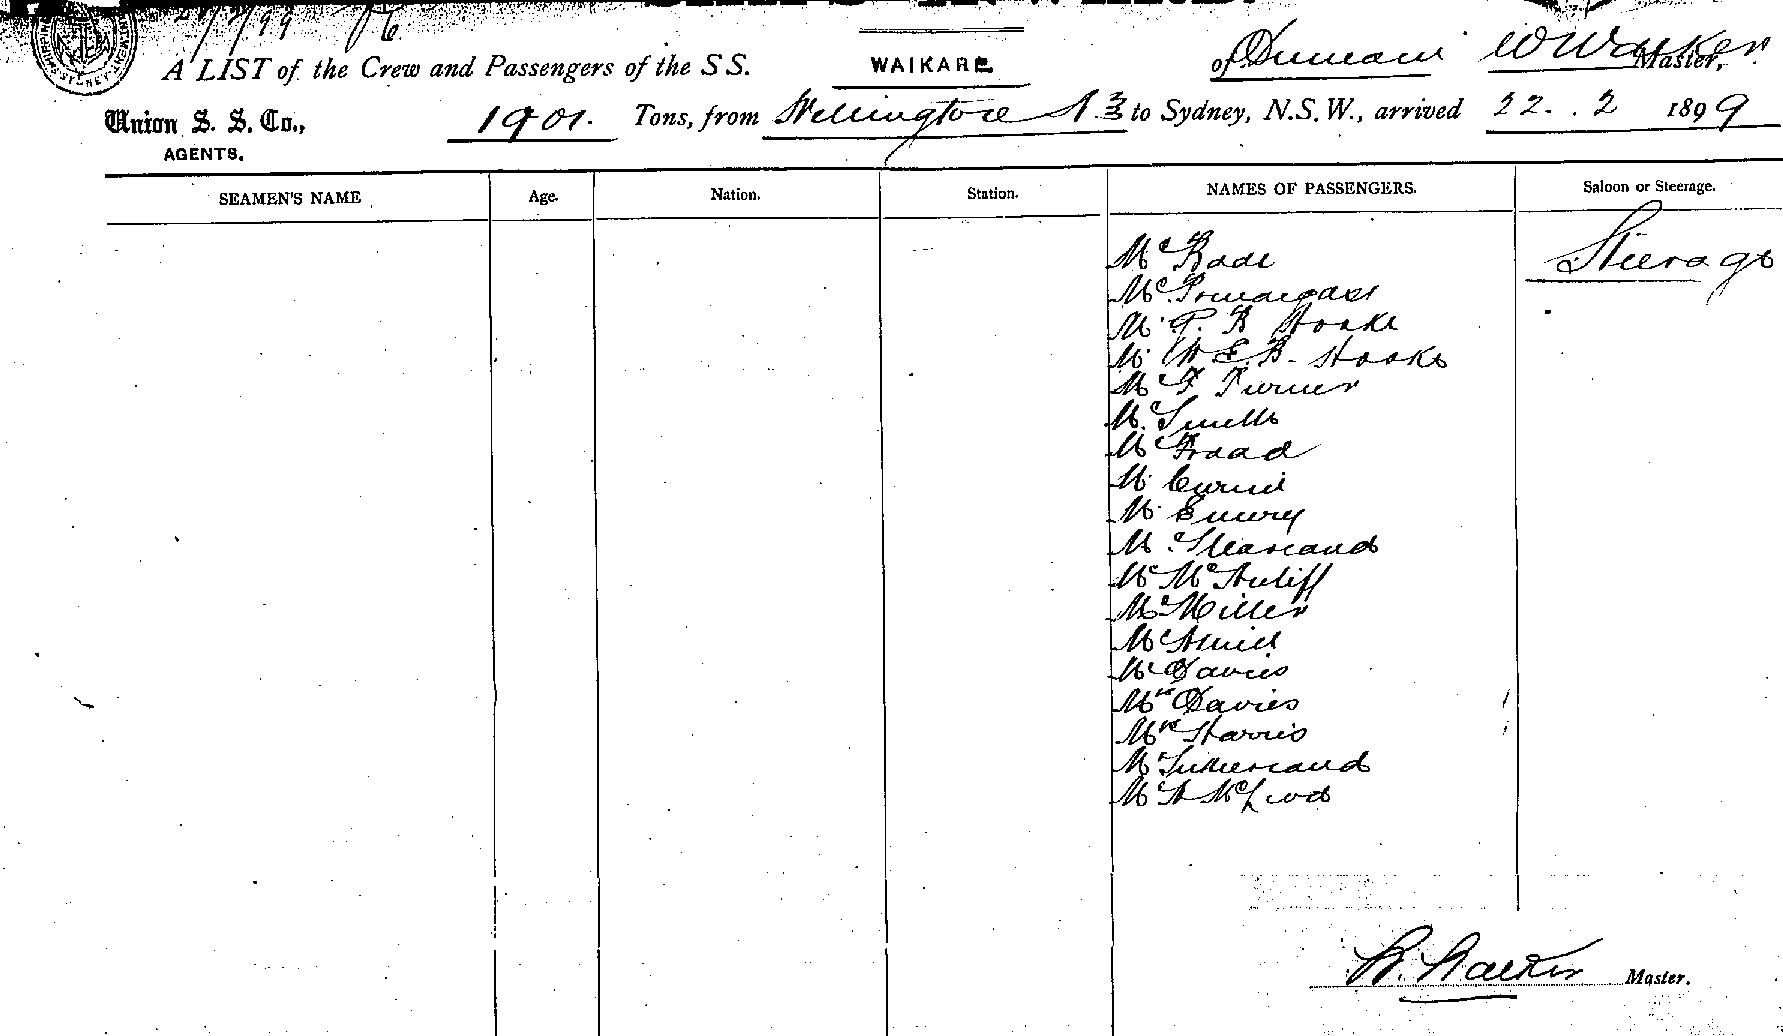 22/2/99
A LIST of the Crew and Passengers of the SS. WAIKARE of Dunedin W Walker Master,
Union S. S. Co., AGENTS. 1901. Tons, from Wellington N.Z to Sydney, N.S.W., arrived 22. . 2 1899
SEAMEN'S NAME Age. Nation. Station. NAMES OF PASSENGERS. Saloon or Steerage.
Mr Rode Steerage
Mr Prendergast
Mr G. B Hooke
Mr W E. B. Hooke
Mr F Turner
Mr Smith
Mr Fraad
Mr Currie
Mr Emery
Mr
Mr McAuliff
Mr Miller
Mr
Mr Davies
Mrs Davies
Mrs Harris
Mr Sutherland
Mr A McLeod
W. Walker Master.